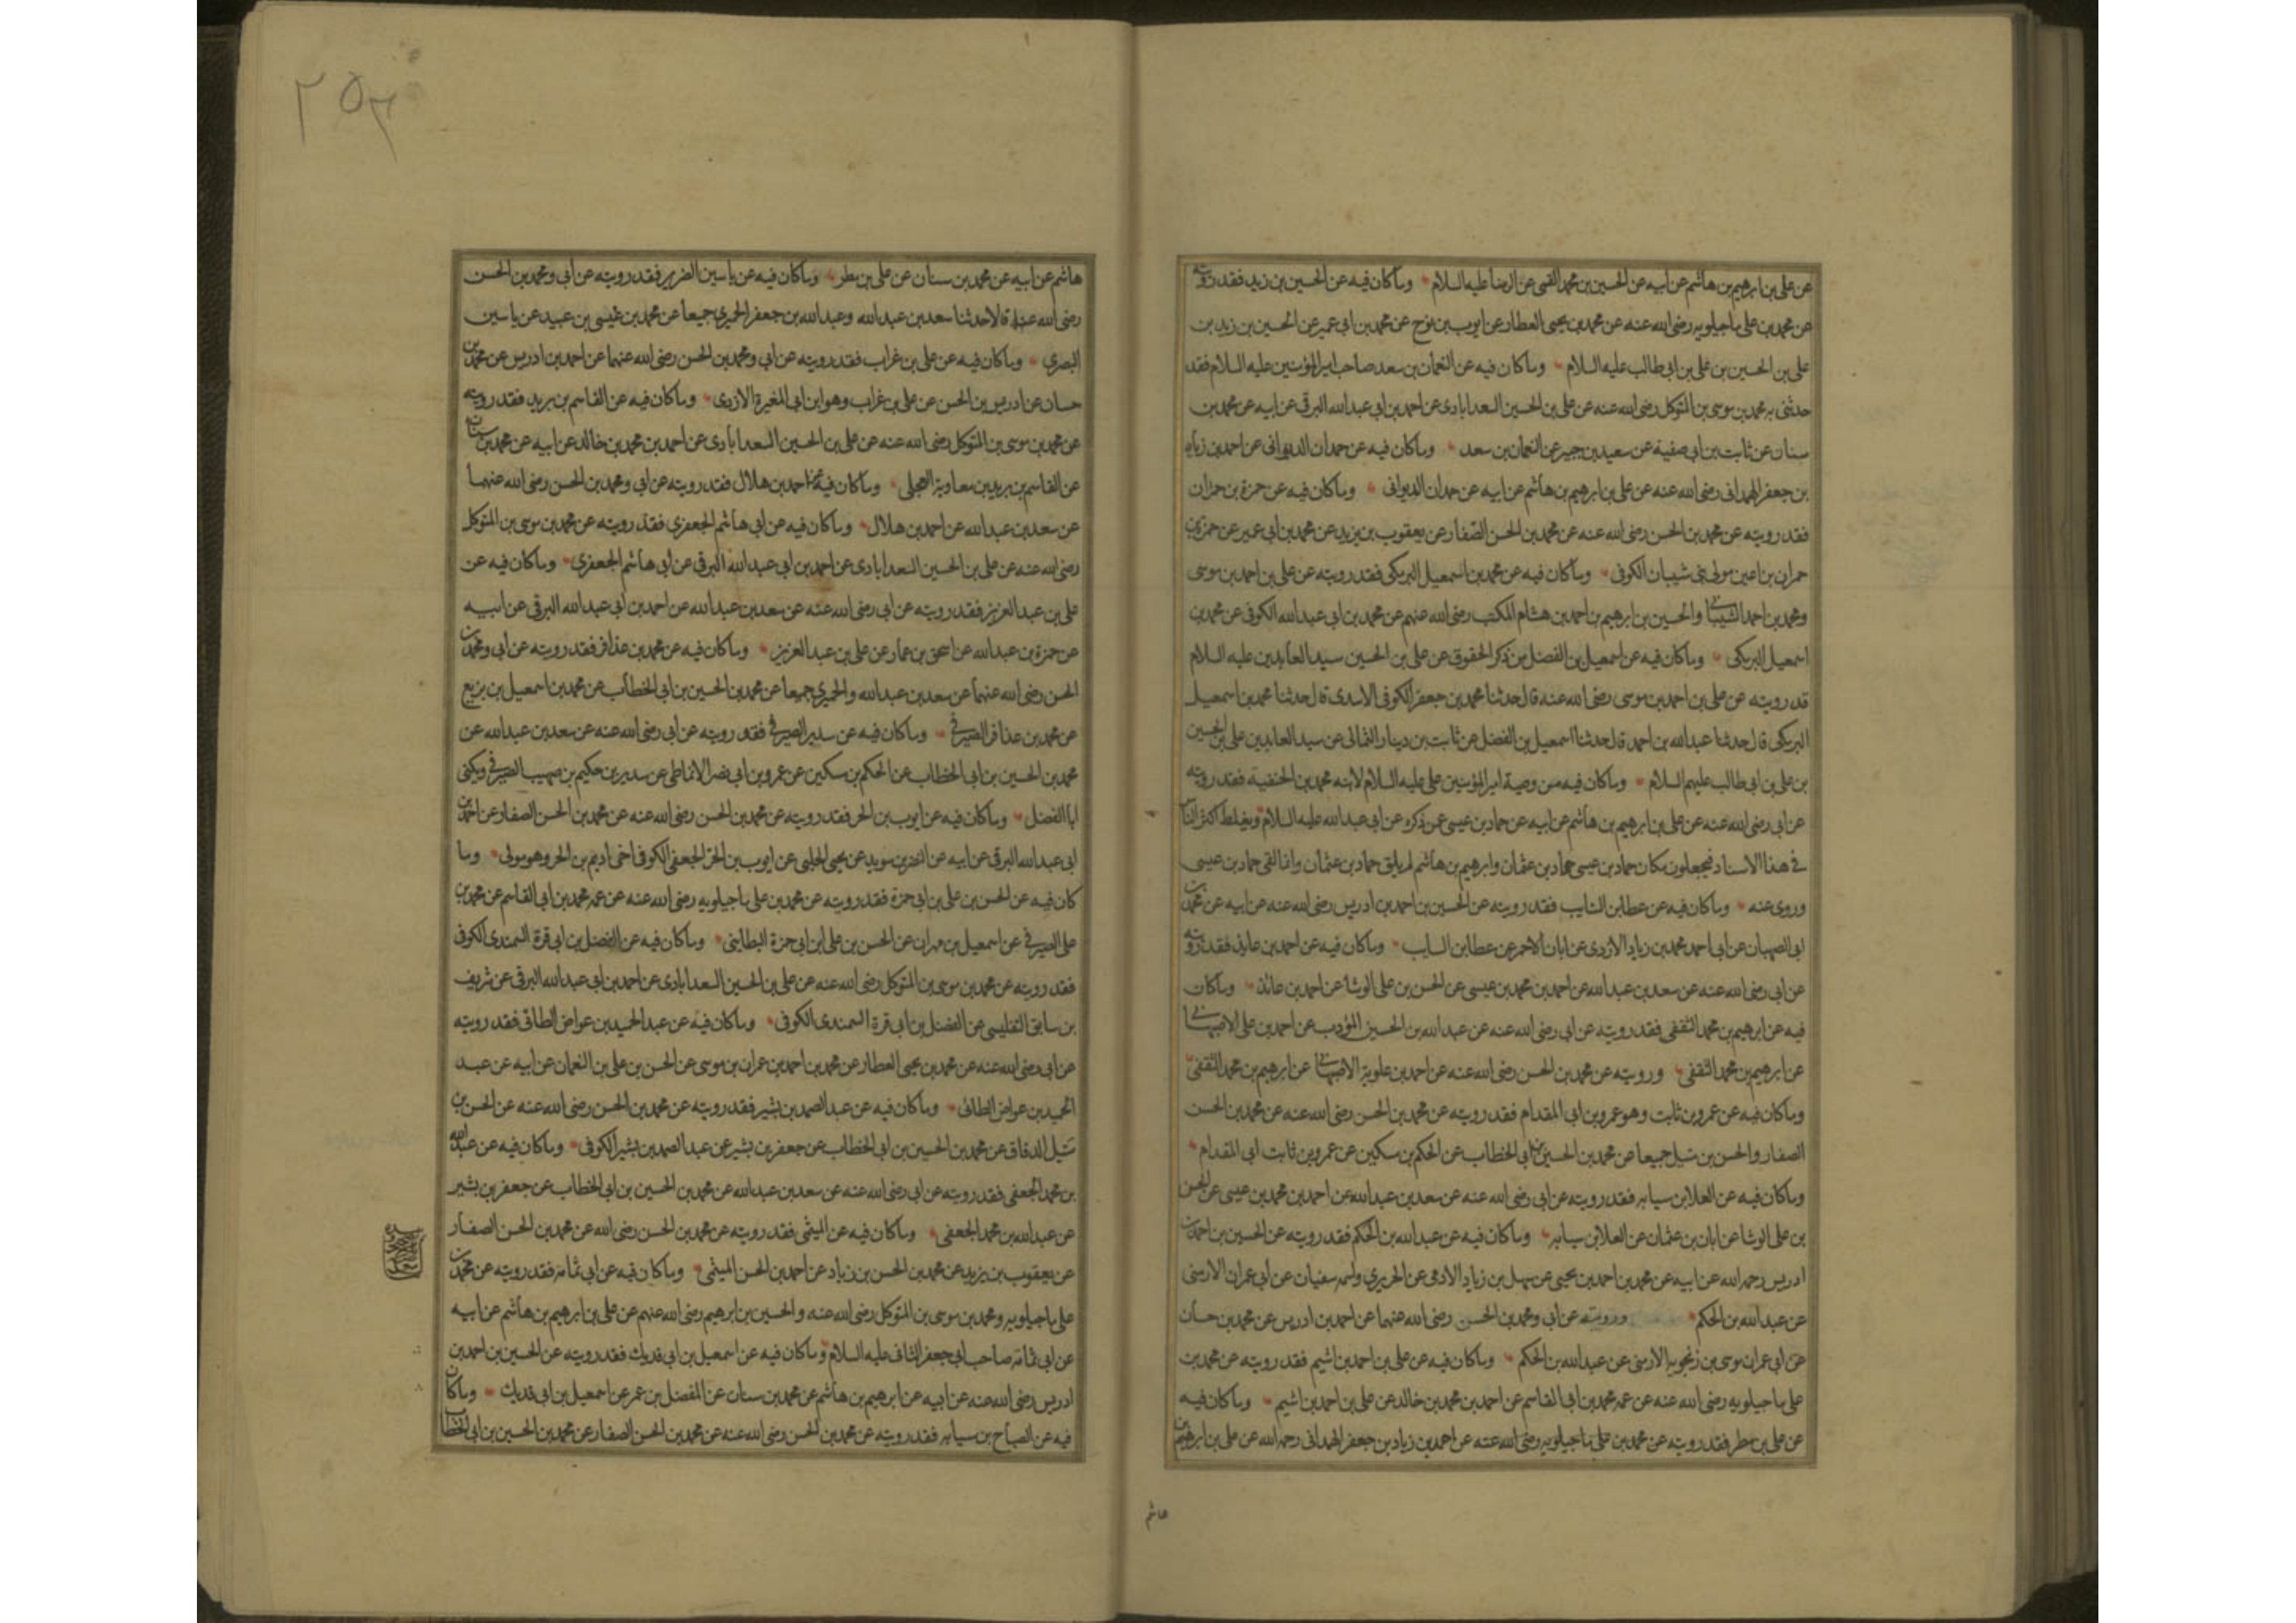 عن علي بن ابرهيم بن هاشم عن ابيه عن الحسين بن محمد القمي عن الرضا عليه السلام وما كان فيه عن الحسين بن زيد فقد رويته
عن محمد بن علي ماجيلويه رضى الله عنه عن محمد بن يحيى العطار عن ايوب بن نوح عن محمد بن ابي عمير عن الحسين بن زيد بن
علي بن الحسين بن علي بن ابي طالب عليه السلام وما كان فيه عن النعمان بن سعد صاحب امير المؤمنين عليه السلام فقد
حدثني به محمد بن موسى بن المتوكل رضى الله عنه عن علي بن الحسين السعدابادى عن احمد بن ابي عبد الله البرقي عن ابيه عن محمد بن
سنان عن ثابت بن ابي صفية عن سعيد بن جبير عن النعمان بن سعد وما كان فيه عن حمدان الديواني عن احمد بن زياد
بن جعفر الهمداني رضى الله عنه عن علي بن ابرهيم بن هاشم عن ابيه عن حمدان الديواني وما كان فيه عن حمزة بن حمران
فقد رويته عن محمد بن الحسن رضى الله عنه عن محمد بن الحسن الصفار عن يعقوب بن يزيد عن محمد بن ابي عمير عن حمزة بن
حمران بن اعين مولى بني شيبان الكوفي وما كان فيه عن محمد بن اسمعيل البرمكي فقد رويته عن علي بن احمد بن موسى
ومحمد بن احمد الشيباني والحسين بن ابرهيم بن احمد بن هشام المكتب رضى الله عنهم عن محمد بن ابي عبد الله الكوفي عن محمد بن
اسمعيل البرمكي وما كان فيه عن اسمعيل بن الفضل من ذكر الحقوق عن علي بن الحسين سيد العابدين عليه السلام
قد رويته عن علي بن احمد بن موسى رضى الله عنه قال حدثنا محمد بن جعفر الكوفي الاسدى قال حدثنا محمد بن اسمعيل
البرمكي قال حدثنا عبد الله بن احمد قال حدثنا اسمعيل بن الفضل عن ثابت بن دينار الثمالي عن سيد العابدين علي بن الحسين
بن علي بن ابي طالب عليهم السلام وما كان فيه من وصية امير المؤمنين علي عليه السلام لابنه محمد بن الحنفية فقد رويته
عن ابي رضى الله عنه عن علي بن ابرهيم بن هاشم عن ابيه عن حماد بن عيسى عمن ذكره عن ابي عبد الله عليه السلام ويغلط اكثر الناس
في هذا الاسناد فيجعلون مكان حماد بن عيسى حماد بن عثمان وابرهيم بن هاشم لم يلق حماد بن عثمان وانما لقى حماد بن عيسى
وروى عنه وما كان فيه عن عطا بن السايب فقد رويته عن الحسين بن احمد بن ادريس رضى الله عنه عن ابيه عن محمد بن
ابي الصهبان عن ابي احمد محمد بن زياد الازدى عن ابان الاحمر عن عطا بن السايب وما كان فيه عن احمد بن عايذ فقد رويته
عن ابي رضى الله عنه عن سعد بن عبد الله عن احمد بن محمد بن عيسى عن الحسن بن علي الوشا عن احمد بن عائذ وما كان
فيه عن ابرهيم بن محمد الثقفي فقد رويته عن ابي رضى الله عنه عن عبد الله بن الحسين المؤدب عن احمد بن علي الاصبهاني
عن ابرهيم بن محمد الثقفي ورويته عن محمد بن الحسن رضى الله عنه عن احمد بن علوية الاصبهاني عن ابرهيم بن محمد الثقفي
وما كان فيه عن عمرو بن ثابت وهو عمرو بن ابي المقدام فقد رويته عن محمد بن الحسن رضى الله عنه عن محمد بن الحسن
الصفار والحسن بن متيل جميعا عن محمد بن الحسين بن ابي الخطاب عن الحكم بن مسكين عن عمرو بن ثابت ابي المقدام
وما كان فيه عن العلا بن سيابه فقد رويته عن ابي رضى الله عنه عن سعد بن عبد الله عن احمد بن محمد بن عيسى عن الحسن
بن علي الوشا عن ابان بن عثمان عن العلا بن سيابه وما كان فيه عن عبد الله بن الحكم فقد رويته عن الحسين بن احمد بن
ادريس رحمه الله عن ابيه عن محمد بن احمد بن يحيى عن سهل بن زياد الادمي عن الحريري واسمه سفيان عن ابي عمران الارمنى
عن عبد الله بن الحكم ورويته عن ابي ومحمد بن الحسن رضى الله عنهما عن احمد بن ادريس عن محمد بن حسان
عن ابي عمران موسى بن زنجويه الارمنى عن عبد الله بن الحكم وما كان فيه عن علي بن احمد بن اشيم فقد رويته عن محمد بن
علي ماجيلويه رضى الله عنه عن عمه محمد بن ابي القاسم عن احمد بن محمد بن خالد عن علي بن احمد بن اشيم وما كان فيه
عن علي بن مطر فقد رويته عن محمد بن علي ماجيلويه رضى الله عنه عن احمد بن زياد بن جعفر الهمداني رحمه الله عن علي بن ابرهيم بن
هاشم
٢٥٣
هاشم عن ابيه عن محمد بن سنان عن علي بن مطر وما كان فيه عن ياسين الضرير فقد رويته عن ابي ومحمد بن الحسن
رضى الله عنهما قالا حدثنا سعد بن عبد الله وعبد الله بن جعفر الحميري جميعا عن محمد بن عيسى بن عبيد عن ياسين
البصري وما كان فيه عن علي بن غراب فقد رويته عن ابي ومحمد بن الحسن رضى الله عنهما عن احمد بن ادريس عن محمد بن
حسان عن ادريس بن الحسن عن علي بن غراب وهو ابن ابي المغيرة الازدى وما كان فيه عن القاسم بن بريد فقد رويته
عن محمد بن موسى بن المتوكل رضى الله عنه عن علي بن الحسين السعدابادى عن احمد بن محمد بن خالد عن ابيه عن محمد بن سنان
عن القاسم بن بريد بن معاوية العجلي وما كان فيه عن احمد بن هلال فقد رويته عن ابي ومحمد بن الحسن رضى الله عنهما
عن سعد بن عبد الله عن احمد بن هلال وما كان فيه عن ابي هاشم الجعفري فقد رويته عن محمد بن موسى بن المتوكل
رضى الله عنه عن علي بن الحسين السعدابادى عن احمد بن ابي عبد الله البرقي عن ابي هاشم الجعفري وما كان فيه عن
علي بن عبد العزيز فقد رويته عن ابي رضى الله عنه عن سعد بن عبد الله عن احمد بن ابي عبد الله البرقي عن ابيه
عن حمزة بن عبد الله عن اسحق بن عمار عن علي بن عبد العزيز وما كان فيه عن محمد بن عذافر فقد رويته عن ابي ومحمد بن
الحسن رضى الله عنهما عن سعد بن عبد الله والحميري جميعا عن محمد بن الحسين بن ابي الخطاب عن محمد بن اسمعيل بن بزيع
عن محمد بن عذافر الصيرفي وما كان فيه عن سدير الصيرفي فقد رويته عن ابي رضى الله عنه عن سعد بن عبد الله عن
محمد بن الحسين بن ابي الخطاب عن الحكم بن مسكين عن عمرو بن ابي نصر الانماطي عن سدير بن حكيم بن صهيب الصيرفي ويكنى
ابا الفضل وما كان فيه عن ايوب بن الحر فقد رويته عن محمد بن الحسن رضى الله عنه عن محمد بن الحسن الصفار عن احمد بن
ابي عبد الله البرقي عن ابيه عن النضر بن سويد عن يحيى الحلبي عن ايوب بن الحر الجعفي الكوفي اخي اديم بن الحر وهو مولى وما
كان فيه عن الحسن بن علي بن ابي حمزة فقد رويته عن محمد بن علي ماجيلويه رضى الله عنه عن عمه محمد بن ابي القاسم عن محمد بن
علي الصيرفي عن اسمعيل بن مهران عن الحسن بن علي ابن ابي حمزة البطايني وما كان فيه عن الفضل بن ابي قرة السمندى الكوفي
فقد رويته عن محمد بن موسى بن المتوكل رضى الله عنه عن علي بن الحسين السعدابادى عن احمد بن ابي عبد الله البرقي عن شريف
بن سابق التفليسي عن الفضل بن ابي قرة السمندى الكوفي وما كان فيه عن عبد الحميد بن عواض الطائي فقد رويته
عن ابي رضى الله عنه عن محمد بن يحيى العطار عن محمد بن احمد بن عمران بن موسى عن الحسن بن علي بن النعمان عن ابيه عن عبد
الحميد بن عواض الطائي وما كان فيه عن عبد الصمد بن بشير فقد رويته عن محمد بن الحسن رضى الله عنه عن الحسن بن
متيل الدقاق عن محمد بن الحسين بن ابي الخطاب عن جعفر بن بشير عن عبد الصمد بن بشير الكوفي وما كان فيه عن عبد الله
بن محمد الجعفي فقد رويته عن ابي رضى الله عنه عن سعد بن عبد الله عن محمد بن الحسين بن ابي الخطاب عن جعفر بن بشير
عن عبد الله بن محمد الجعفي وما كان فيه عن الميثمي فقد رويته عن محمد بن الحسن رضى الله عن محمد بن الحسن الصفار
عن يعقوب بن يزيد عن محمد بن الحسن بن زياد عن احمد بن الحسن الميثمي وما كان فيه عن ابي ثمامه فقد رويته عن محمد بن
علي ماجيلويه ومحمد بن موسى بن المتوكل رضى الله عنه والحسين بن ابرهيم رضى الله عنهم عن علي بن ابرهيم بن هاشم عن ابيه
عن ابي ثمامه صاحب ابي جعفر الثاني عليه السلام وما كان فيه عن اسمعيل بن ابي فديك فقد رويته عن الحسين بن احمد بن
ادريس رضى الله عنه عن ابيه عن ابرهيم بن هاشم عن محمد بن سنان عن المفضل بن عمر عن اسمعيل بن ابي فديك وما كان
فيه عن الصباح بن سيابه فقد رويته عن محمد بن الحسن رضى الله عنه عن محمد بن الحسن الصفار عن محمد بن الحسين بن ابي الخطاب